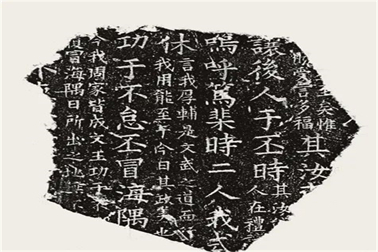 矣惟
言多福
其汝
讓後人于丕時
其汝
人在禮
嗚呼篤棐時二人我式
休
言我厚輔是文武之道而
我用能至于今日其政美也
功于不怠丕冒海隅
今我周家皆成文王功于
冒海隅日所出之地
不